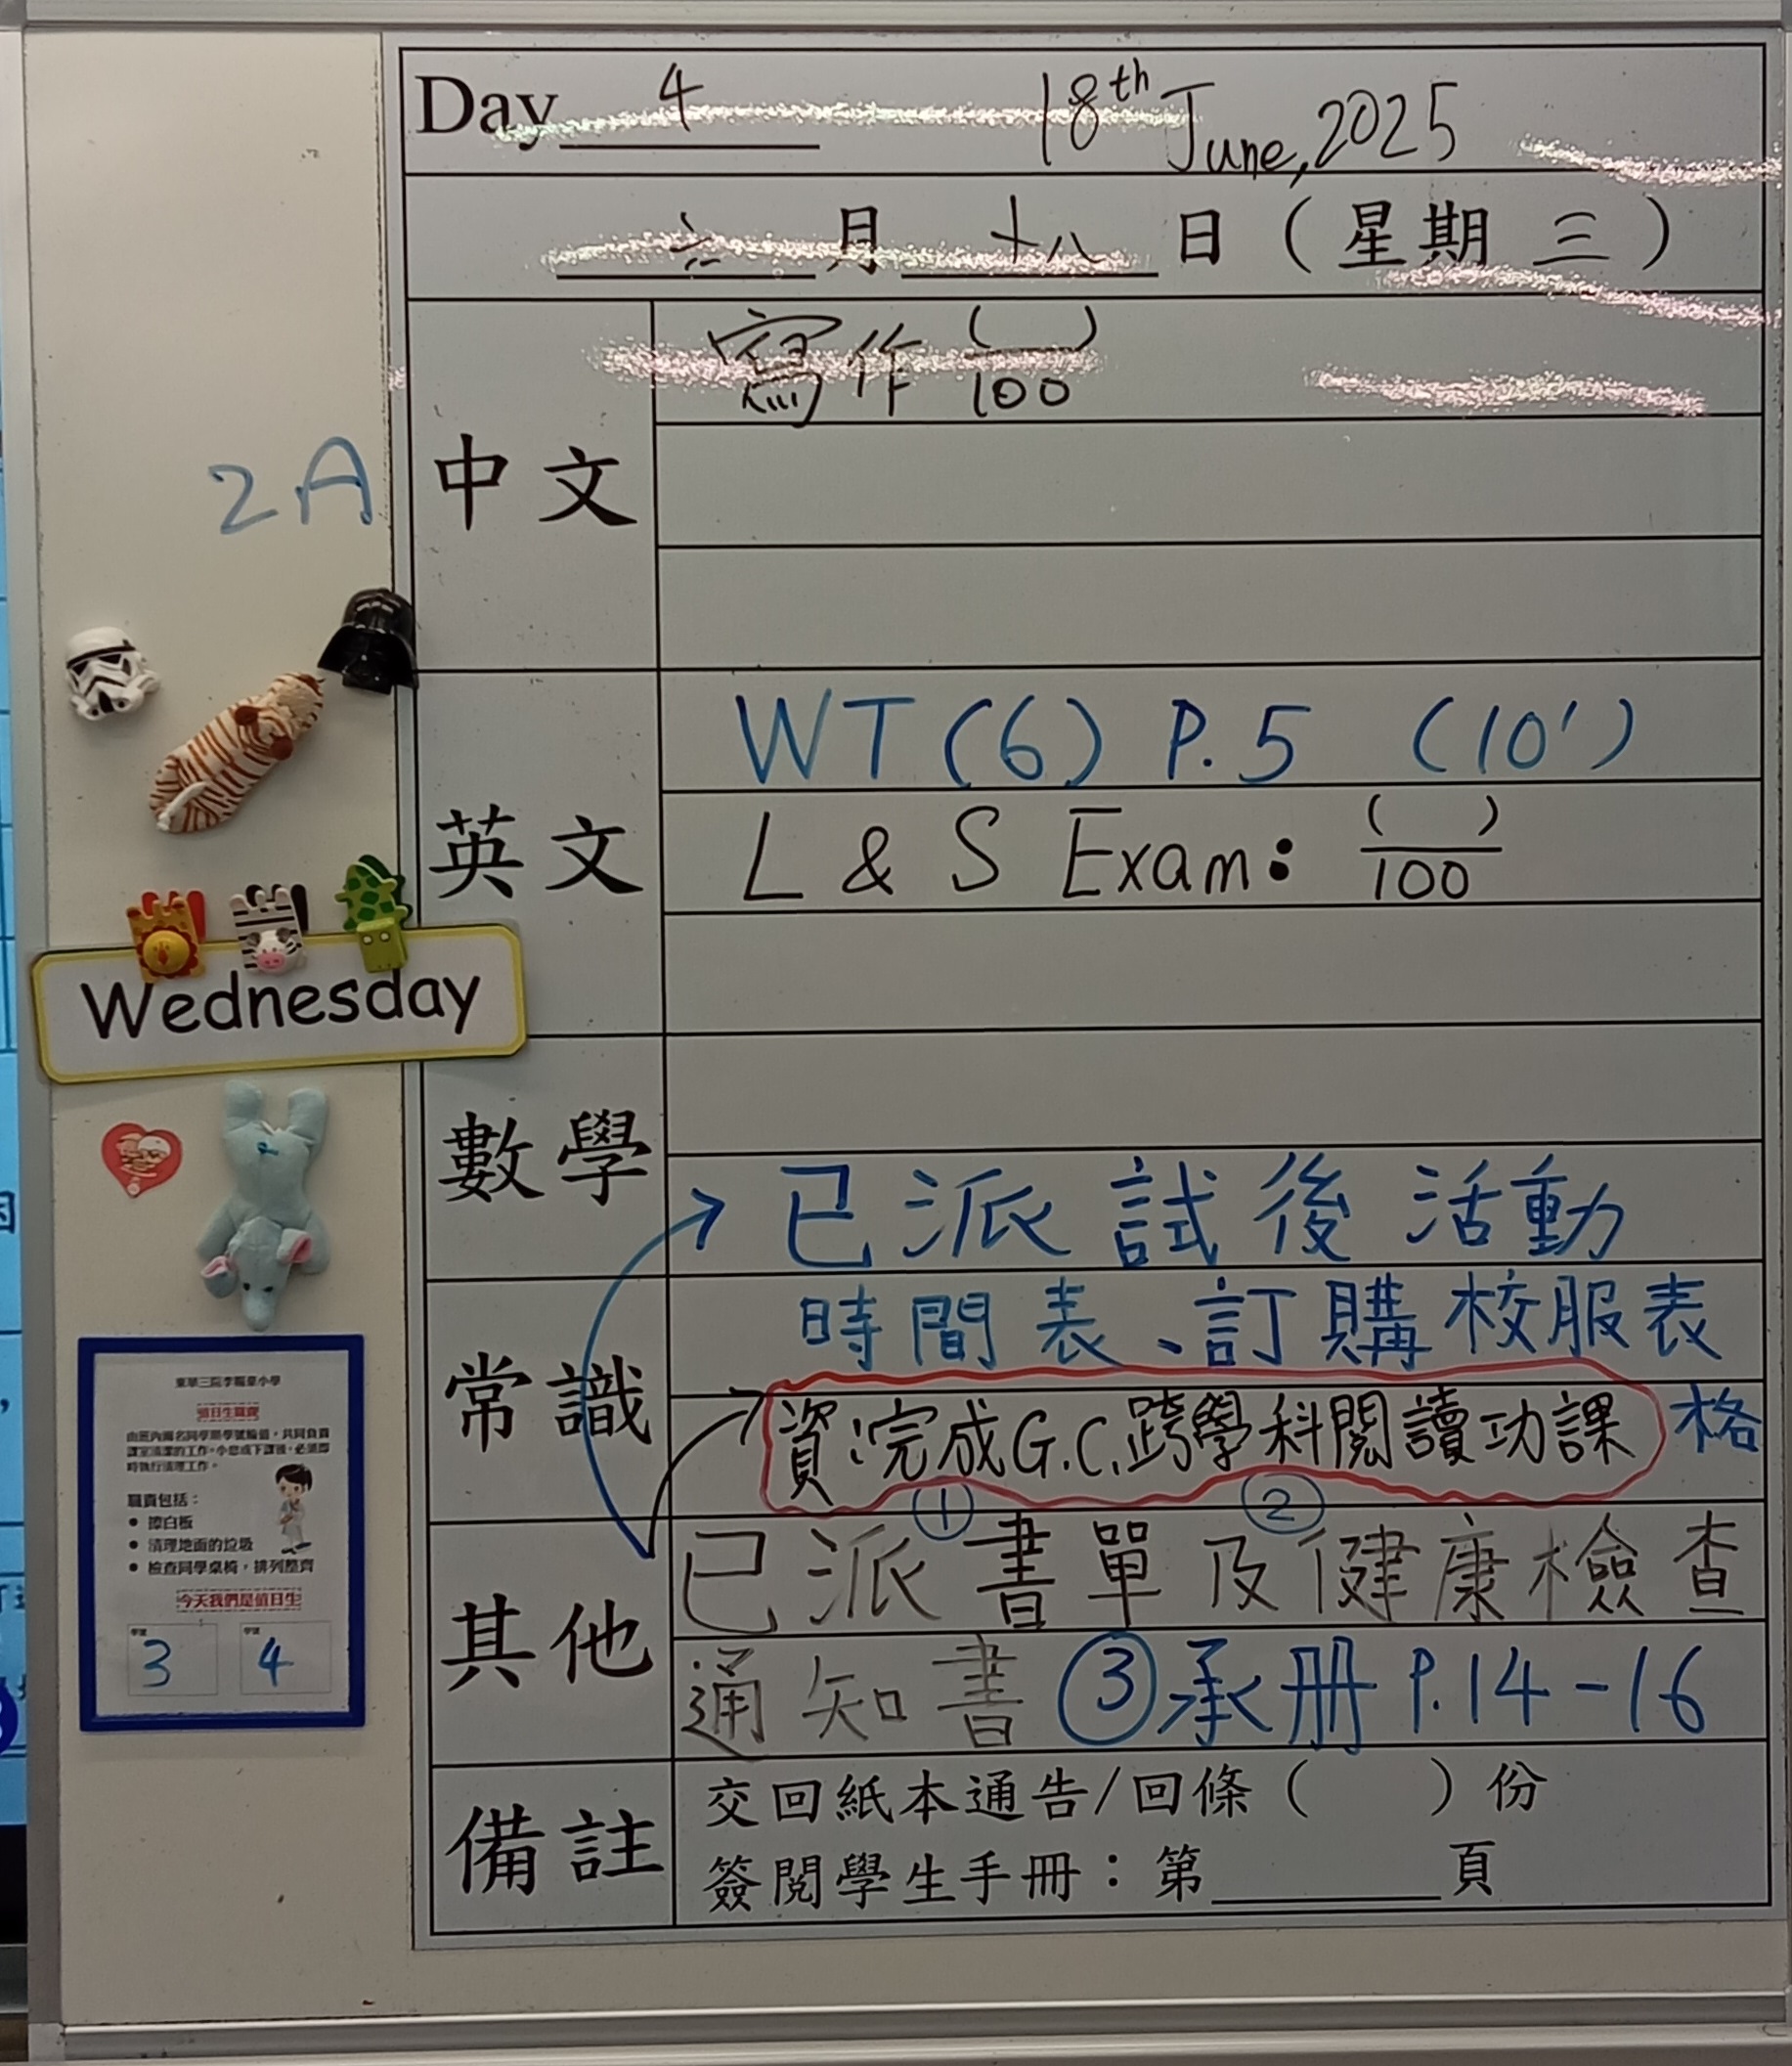 Day 4 18th June, 2025
六 月 十八 日 ( 星期 三 )
中文
寫作 ( )/100
2A
英文
WT (6) P. 5 (10')
L & S Exam: ( )/100
Wednesday
數學
已派試後活動
時間表、訂購校服表
格
常識
資:完成G.C.跨學科閱讀功課
其他
已派①書單及②健康檢查
通知書 ③承册 P.14-16
備註
交回紙本通告/回條 ( ) 份
簽閱學生手冊:第 頁
值日生職責
由班內兩名同學順學號輪值,共同負責
課室清潔的工作。小息或下課後,必須即
時執行清理工作。
職責包括:
• 擦白板
• 清理地面的垃圾
• 檢查同學桌椅,排列整齊
今天我們是值日生
學號 學號
3 4